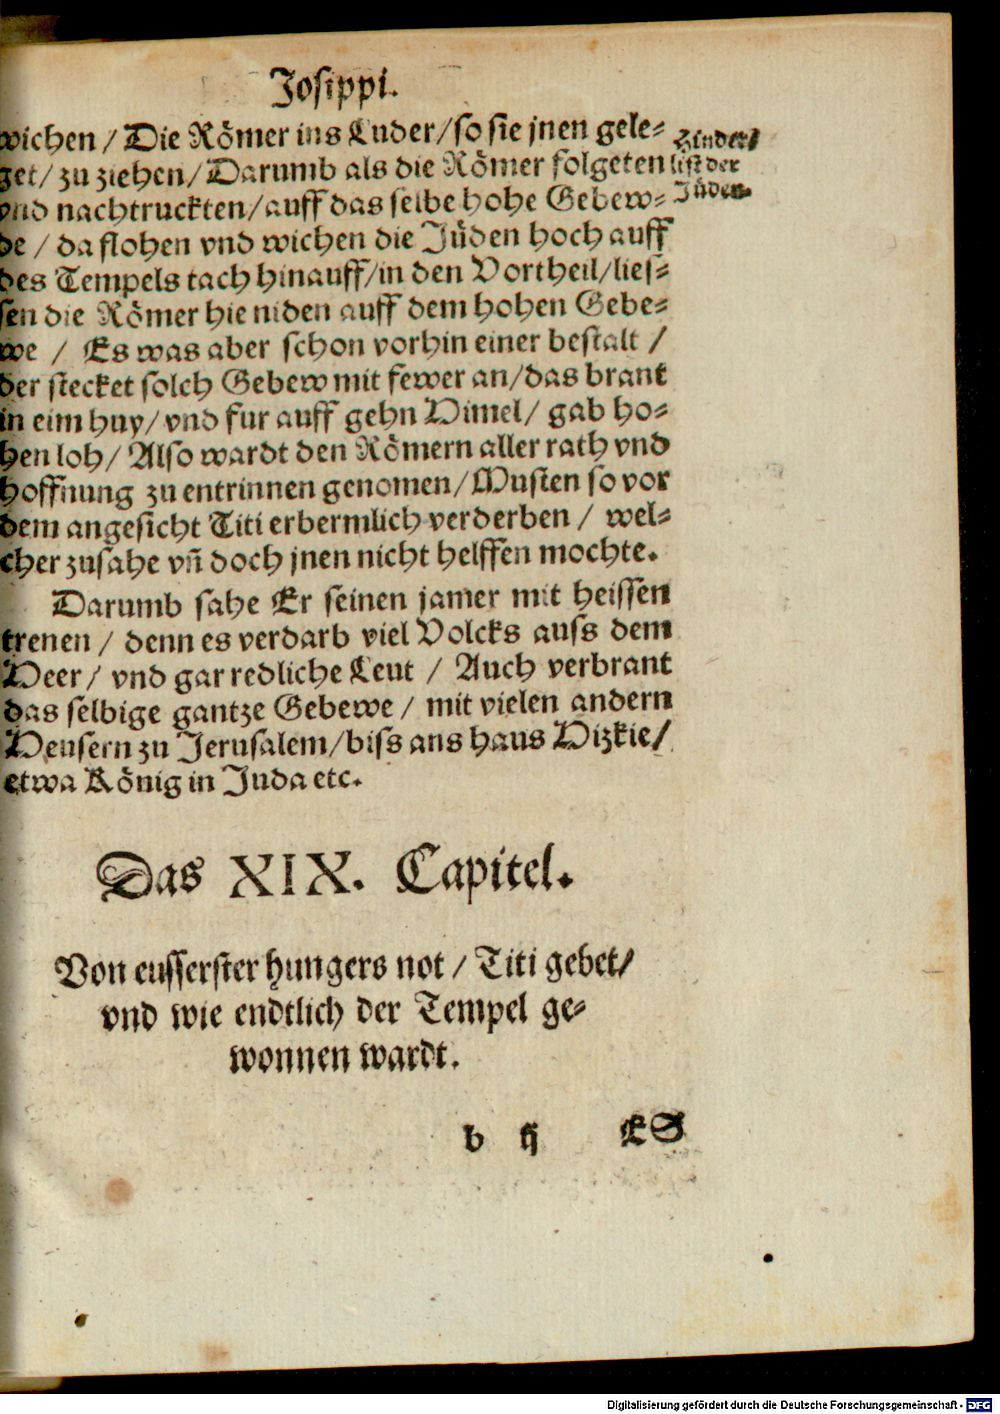 Josippi.
wichen / Die Römer ins Luder / so sie jnen gele⸗
get / zu ziehen / Darumb als die Römer folgeten
vnd nachtruckten / auff das selbe hohe Gebew⸗
de / da flohen vnd wichen die Jüden hoch auff
des Tempels tach hinauff / in den Vortheil / lies⸗
sen die Römer hie niden auff dem hohen Gebe⸗
we / Es was aber schon vorhin einer bestalt /
der stecket solch Gebew mit fewer an / das brant
in eim huy / vnd fur auff gehn Himel / gab ho⸗
hen loh / Also wardt den Römern aller rath vnd
hoffnung zu entrinnen genomen / Musten so vor
dem angesicht Titi erbermlich verderben / wel⸗
cher zusahe vñ doch jnen nicht helffen mochte.
Darumb sahe Er seinen jamer mit heissen
trenen / denn es verdarb viel Volcks auss dem
Heer / vnd gar redliche Leut / Auch verbrant
das selbige gantze Gebewe / mit vielen andern
Heusern zu Jerusalem / biss ans haus Hizkie /
etwa König in Juda etc.
Hinder⸗
list der
Jüden.
Das XIX. Capitel.
Von eusserster hungers not / Titi gebet /
vnd wie endtlich der Tempel ge⸗
wonnen wardt.
b ij ES
Digitalisierung gefördert durch die Deutsche Forschungsgemeinschaft - DFG